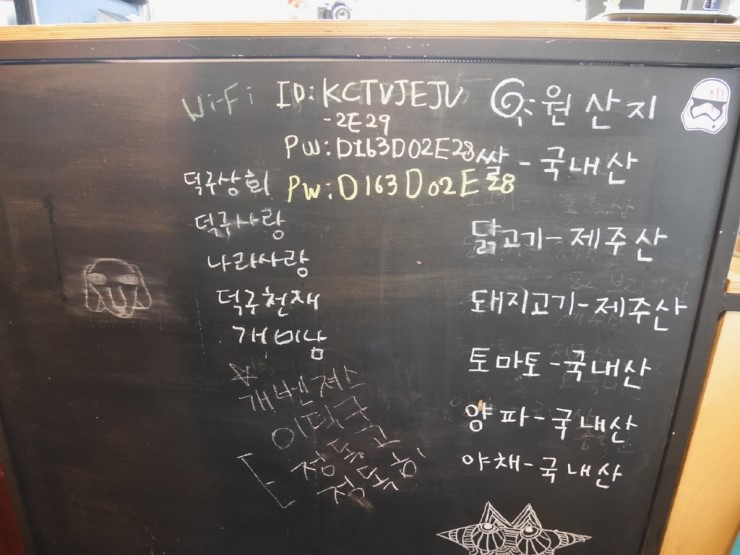 Wi-Fi ID: KCTVJEJU
-2E29
PW: D163D02E28
PW: D163D02E28
덕구상회
덕구사랑
나라사랑
덕구천재
개미남
개벤져스
이덕구
원산지
쌀-국내산
닭고기-제주산
돼지고기-제주산
토마토-국내산
양파-국내산
야채-국내산